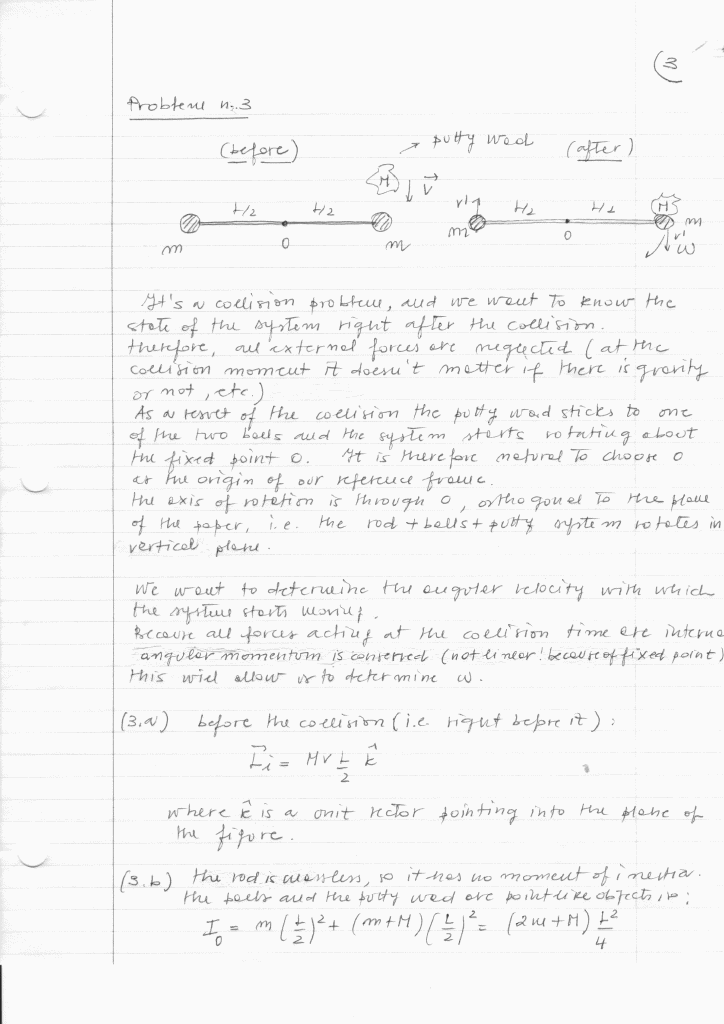 (3
Problem n. 3
(before) → putty wad (after)
M v
L/2 L/2 v' L/2 L/2 M m
m O m m O v' ω
It's a collision problem, and we want to know the
state of the system right after the collision.
therefore, all external forces are neglected (at the
collision moment it doesn't matter if there is gravity
or not, etc.)
As a result of the collision the putty wad sticks to one
of the two balls and the system starts rotating about
the fixed point O. It is therefore natural to choose O
as the origin of our reference frame.
the axis of rotation is through O, orthogonal to the plane
of the paper, i.e. the rod + balls + putty system rotates in
vertical plane.
We want to determine the angular velocity with which
the system starts moving.
Because all forces acting at the collision time are interna
angular momentum is conserved (not linear! because of fixed point)
this will allow us to determine ω.
(3.a) before the collision (i.e. right before it):
L⃗i = Mv L/2 k̂
where k̂ is a unit vector pointing into the plane of
the figure.
(3.b) the rod is massless, so it has no moment of inertia.
the balls and the putty wad are pointlike objects, so:
I₀ = m (L/2)² + (m+M) (L/2)² = (2m+M) L²/4